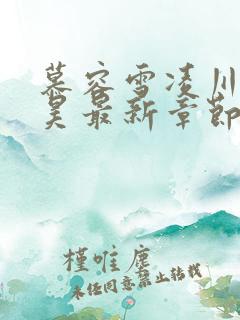 慕容雪凌川
昊最新章节
槿唯塵
未经同意禁止转载